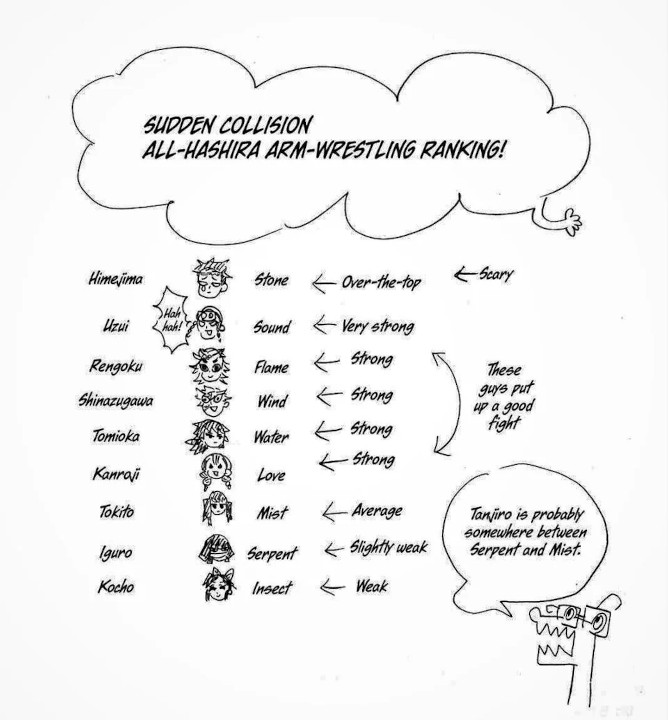 SUDDEN COLLISION
ALL-HASHIRA ARM-WRESTLING RANKING!
Himejima Stone ← Over-the-top ← Scary
Hah
hah!
Uzui Sound ← Very strong
Rengoku Flame ← Strong
Shinazugawa Wind ← Strong
Tomioka Water ← Strong
Kanroji Love ← Strong
These
guys put
up a good
fight
Tokito Mist ← Average
Iguro Serpent ← Slightly weak
Kocho Insect ← Weak
Tanjiro is probably
somewhere between
Serpent and Mist.